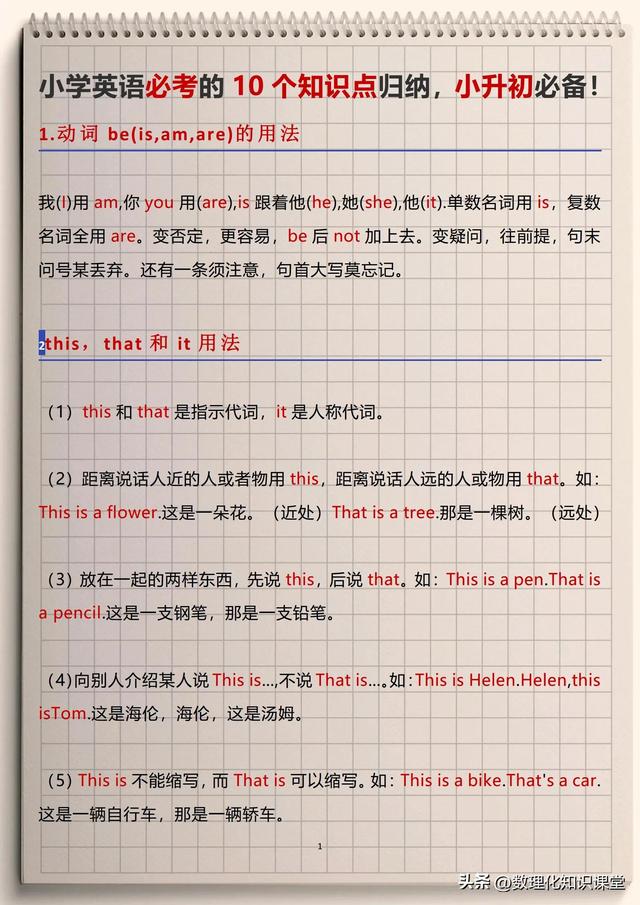 小学英语必考的 10 个知识点归纳，小升初必备！
1.动词 be(is,am,are)的用法
我(I)用 am,你 you 用(are),is 跟着他(he),她(she),他(it).单数名词用 is，复数
名词全用 are。变否定，更容易，be 后 not 加上去。变疑问，往前提，句末
问号某丢弃。还有一条须注意，句首大写莫忘记。
2this，that 和 it 用法
（1）this 和 that 是指示代词，it 是人称代词。
（2）距离说话人近的人或者物用 this，距离说话人远的人或物用 that。如：
This is a flower.这是一朵花。（近处）That is a tree.那是一棵树。（远处）
（3）放在一起的两样东西，先说 this，后说 that。如：This is a pen.That is
a pencil.这是一支钢笔，那是一支铅笔。
（4)向别人介绍某人说 This is…,不说 That is…。如:This is Helen.Helen,this
isTom.这是海伦，海伦，这是汤姆。
（5）This is 不能缩写，而 That is 可以缩写。如：This is a bike.That's a car.
这是一辆自行车，那是一辆轿车。
1
头条 @数理化知识课堂